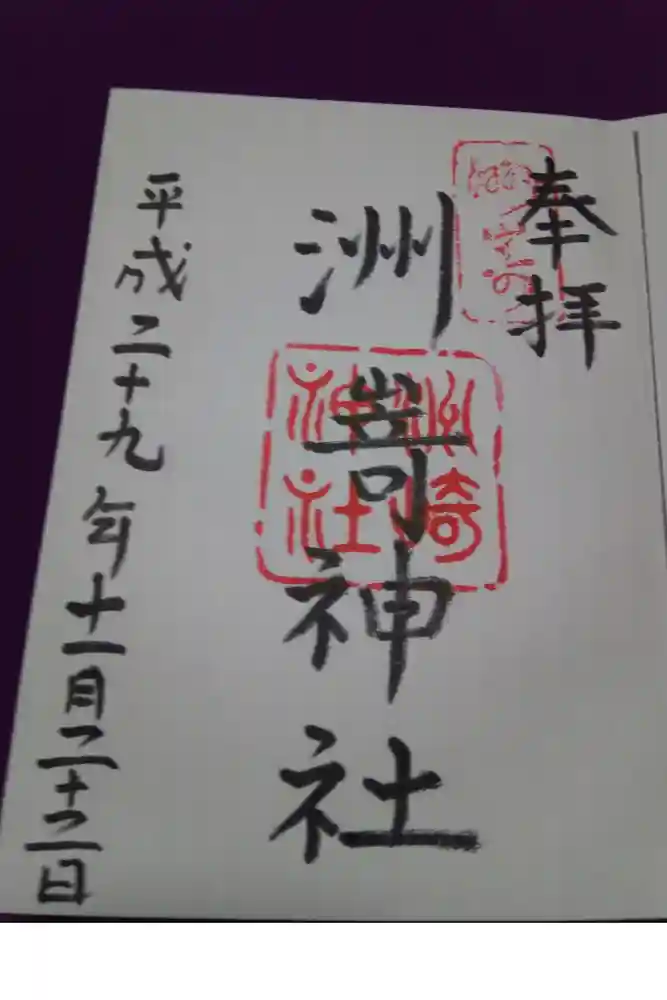 奉拝
洲嵜神社
洲崎
神社
平成二十九年十一月二十二日